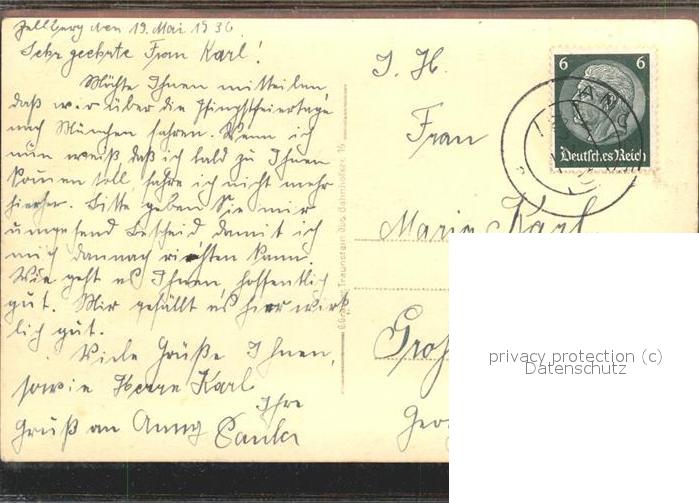 Zellberg den 19. Mai 1936.
Sehr geehrte Frau Karl!
Möchte Ihnen mitteilen,
daß wir über die Pfingstfeiertage
nach München fahren. Wenn ich
nun weiß daß ich bald zu Ihnen
kommen soll, fahre ich nicht mehr
hierher. Bitte geben Sie mir
umgehend Bescheid damit ich
mich dannach richten kann.
Wie geht es Ihnen, hoffentlich
gut. Mir gefällt es hier wirk
lich gut.
Viele Grüße Ihnen,
sowie Herrn Karl
Ihre
Gruß an Anny Paula
I. H.
Frau
Maria Karl
Groß
Geor
6 6
Deutsches Reich
privacy protection (c)
Datenschutz